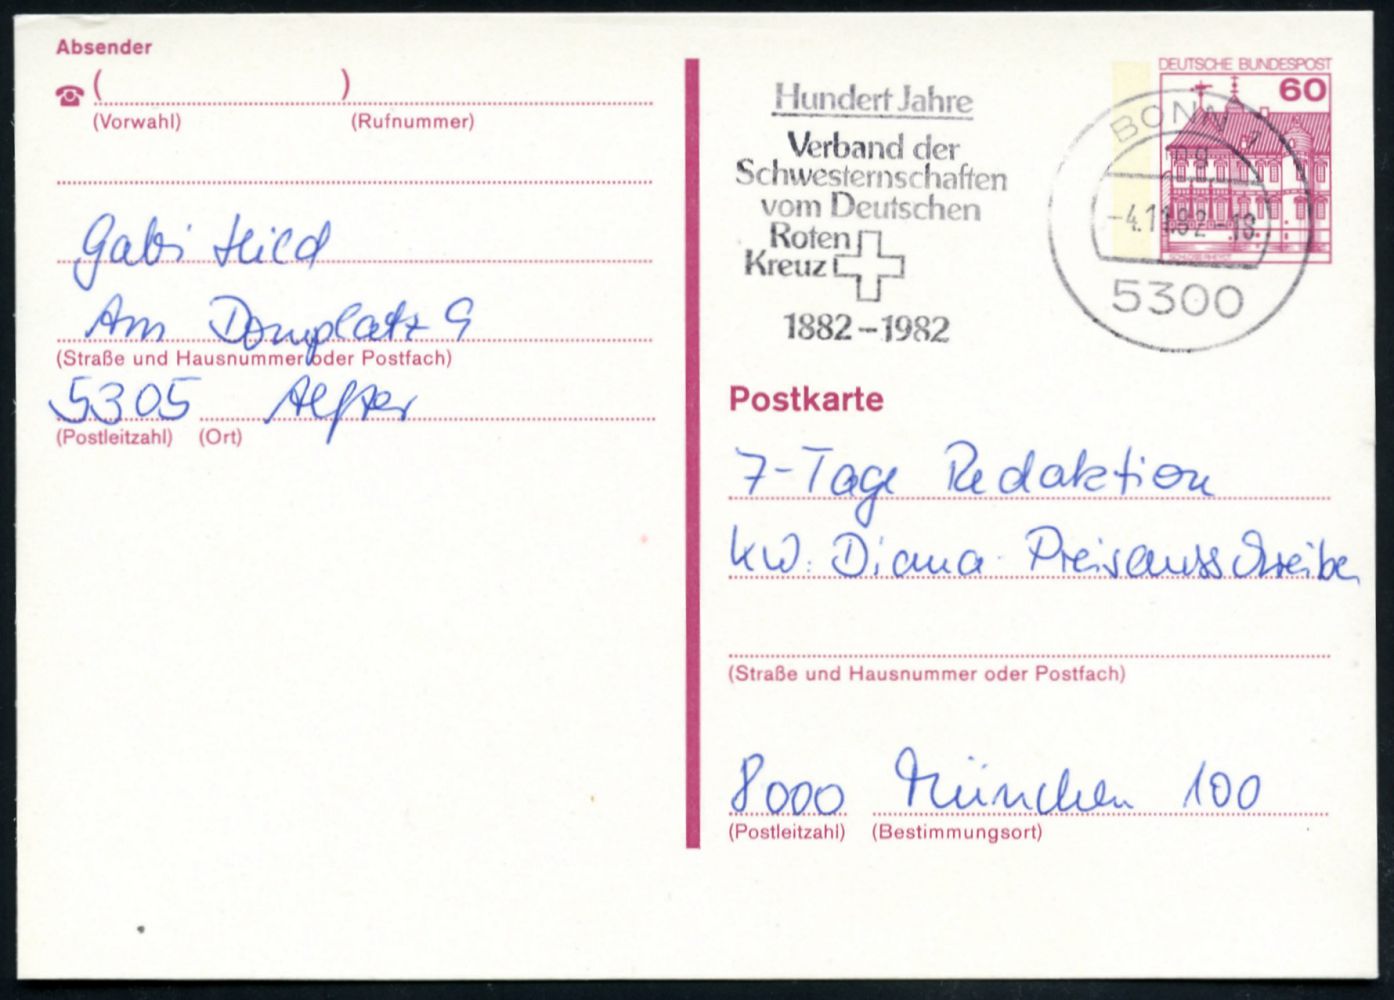 Absender
( )
(Vorwahl) (Rufnummer)
Gabi Hild
Am Domplatz 9
(Straße und Hausnummer oder Postfach)
5305 Alfter
(Postleitzahl) (Ort)
Hundert Jahre
Verband der
Schwesternschaften
vom Deutschen
Roten
Kreuz
1882-1982
DEUTSCHE BUNDESPOST
60
SCHLOSS RHEYDT
BONN 1
-4.11.82-18
5300
Postkarte
7-Tage Redaktion
KW: Diana-Preisausschreiben
(Straße und Hausnummer oder Postfach)
8000 München 100
(Postleitzahl) (Bestimmungsort)